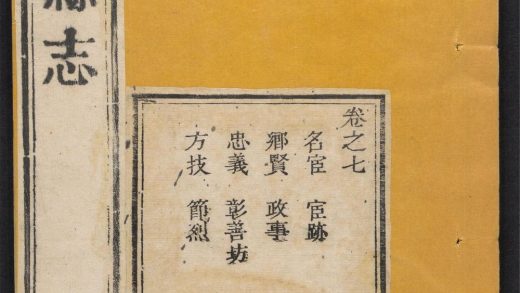 卷之七
名宦 宦跡
鄉賢 政事
忠義 彰善坊
方技 節烈
志